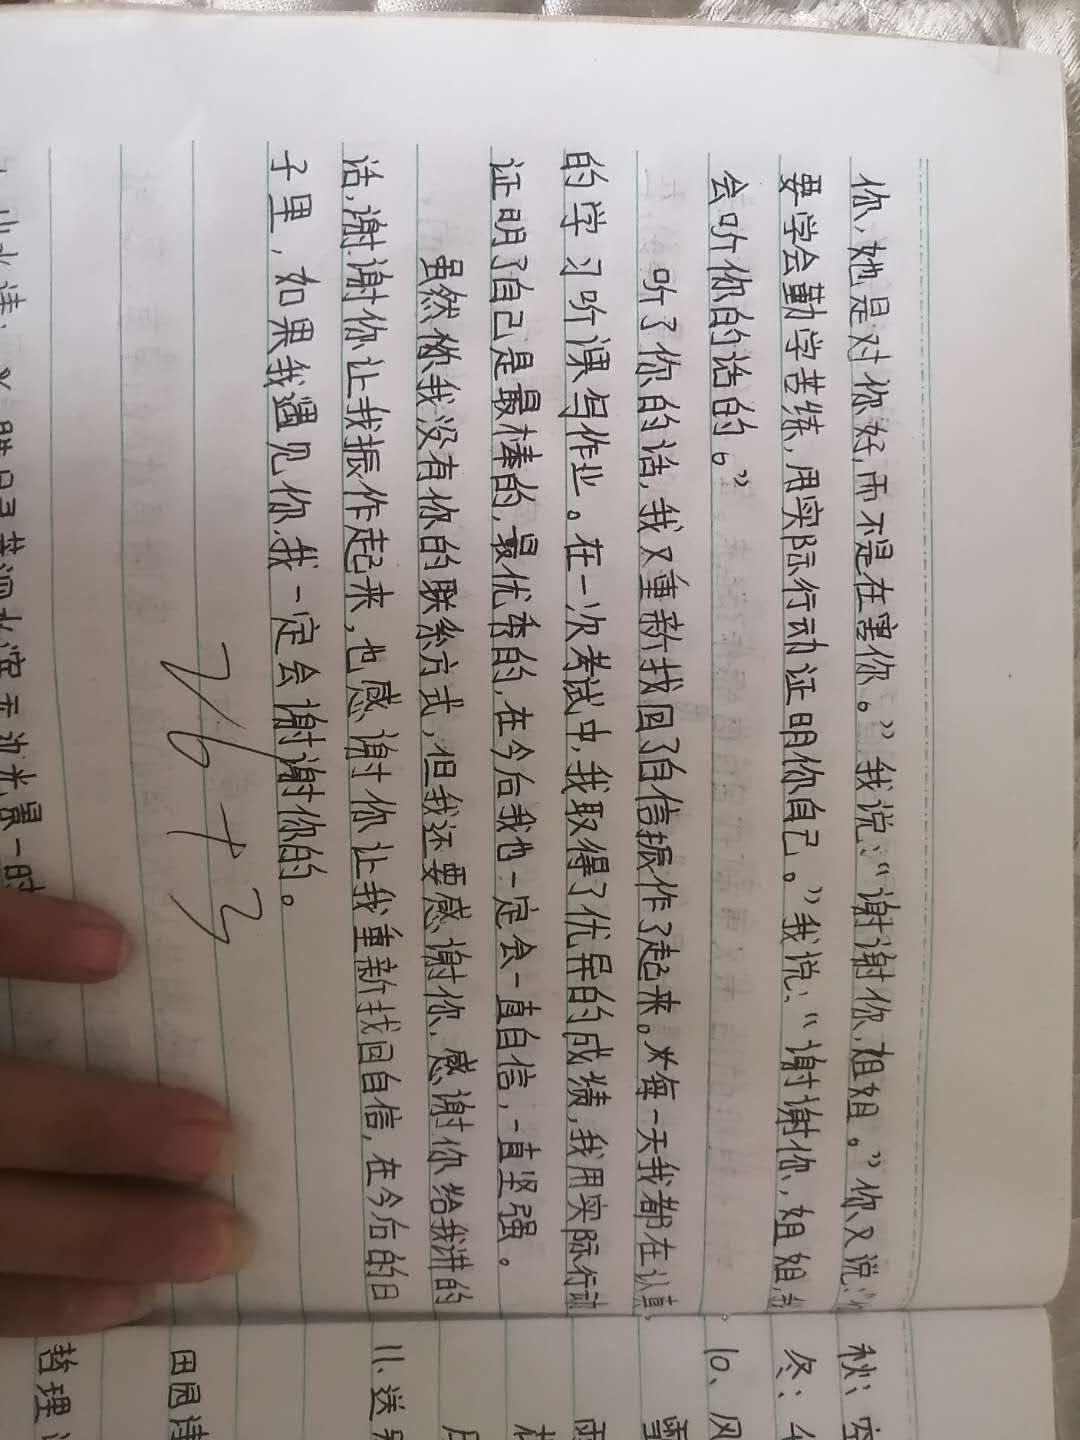 你,她是对你好,而不是在害你。”我说:“谢谢你,姐姐。”你又说:
要学会勤学苦练,用实际行动证明你自己。”我说:“谢谢你,姐姐,我
会听你的话的。”
听了你的话,我又重新找回了自信振作了起来。每一天我都在认真
的学习听课写作业。在一次考试中,我取得了优异的成绩,我用实际行动
证明了自己是最棒的,最优秀的,在今后我也一定会一直自信,一直坚强。
虽然你我没有你的联系方式,但我还要感谢你,感谢你给我讲的
话,谢谢你让我振作起来,也感谢你让我重新找回自信,在今后的日
子里,如果我遇见你,我一定会谢谢你的。
26+3
秋:空
冬:
10、风
雪
雨
11、送别
田园诗
哲理